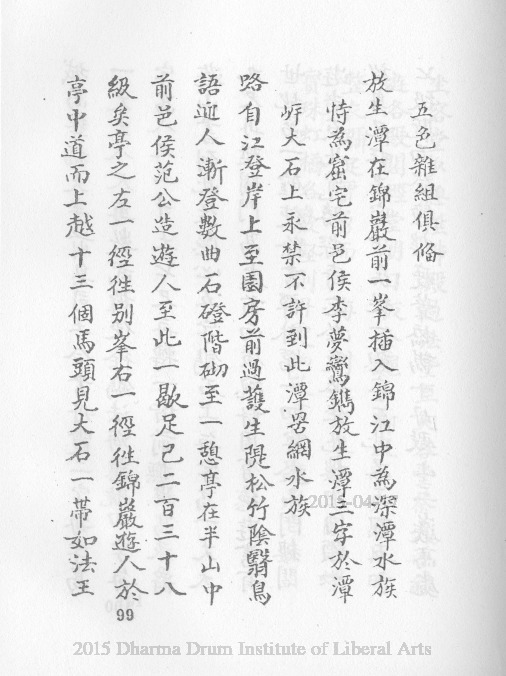 五色雜組俱俻
放生潭在錦巖前一峯插入錦江中為深潭水族
恃為窟宅前邑侯李夢鸞鐫放生潭三字於潭
岸大石上永禁不許到此潭罟網水族
路自江登岸上至園房前過護生隄松竹陰翳鳥
語迎人漸登數曲石磴階砌至一憩亭在半山中
前邑侯范公造遊人至此一歇足己二百三十八
級矣亭之左一徑徃别峯右一徑徃錦巖遊人於
亭中道而上越十三個馬頭見大石一帶如法王
99
2015 Dharma Drum Institute of Liberal Arts